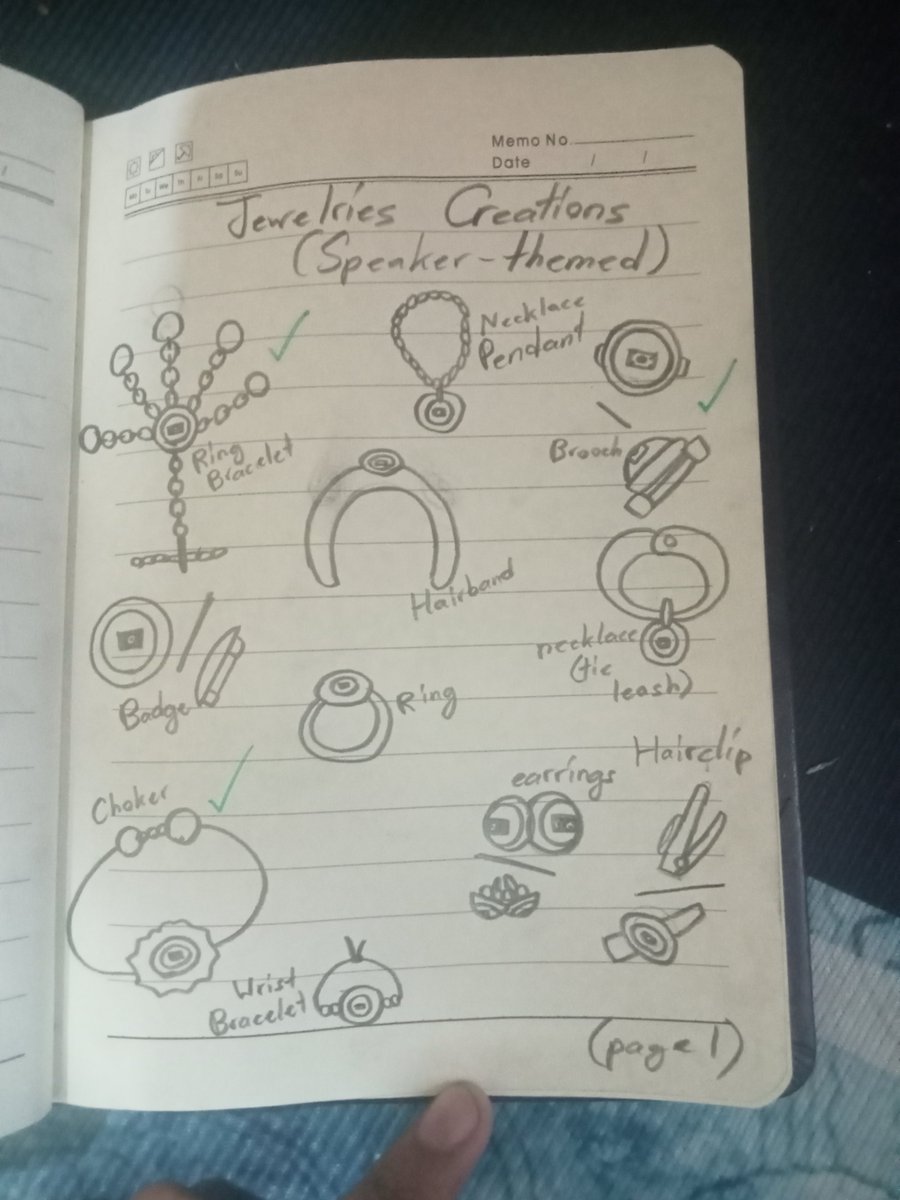 Memo No.
Date / /
Mo Tu We Th Fr Sa Su
Jewelries Creations
(Speaker-themed)
Necklace
Pendant
Ring
Bracelet
Brooch
Hairband
necklace
(tie
leash)
Badge
Ring
Hairclip
earrings
Choker
Wrist
Bracelet
(page 1)